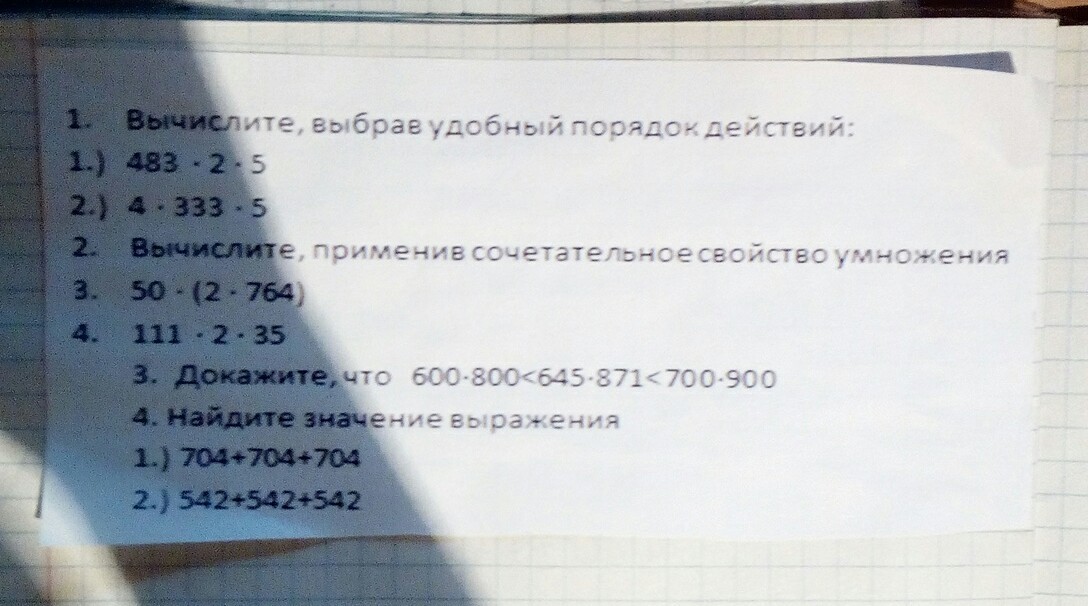 1. Вычислите, выбрав удобный порядок действий:
1.) 483 · 2 · 5
2.) 4 · 333 · 5
2. Вычислите, применив сочетательное свойство умножения
3. 50 · (2 · 764)
4. 111 · 2 · 35
3. Докажите, что 600·800<645·871<700·900
4. Найдите значение выражения
1.) 704+704+704
2.) 542+542+542